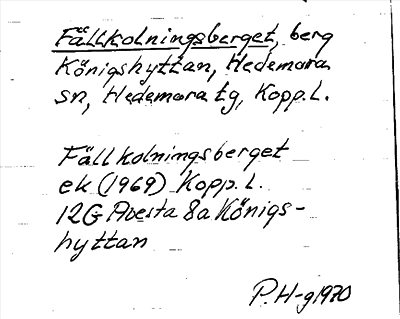 Fällkolningsberget, berg
Königshyttan, Hedemora
sn, Hedemora tg, Kopp.l.
Fällkolningsberget
ek (1969) Kopp.l.
12G Avesta 8a Königs-
hyttan
P.H-g 1970